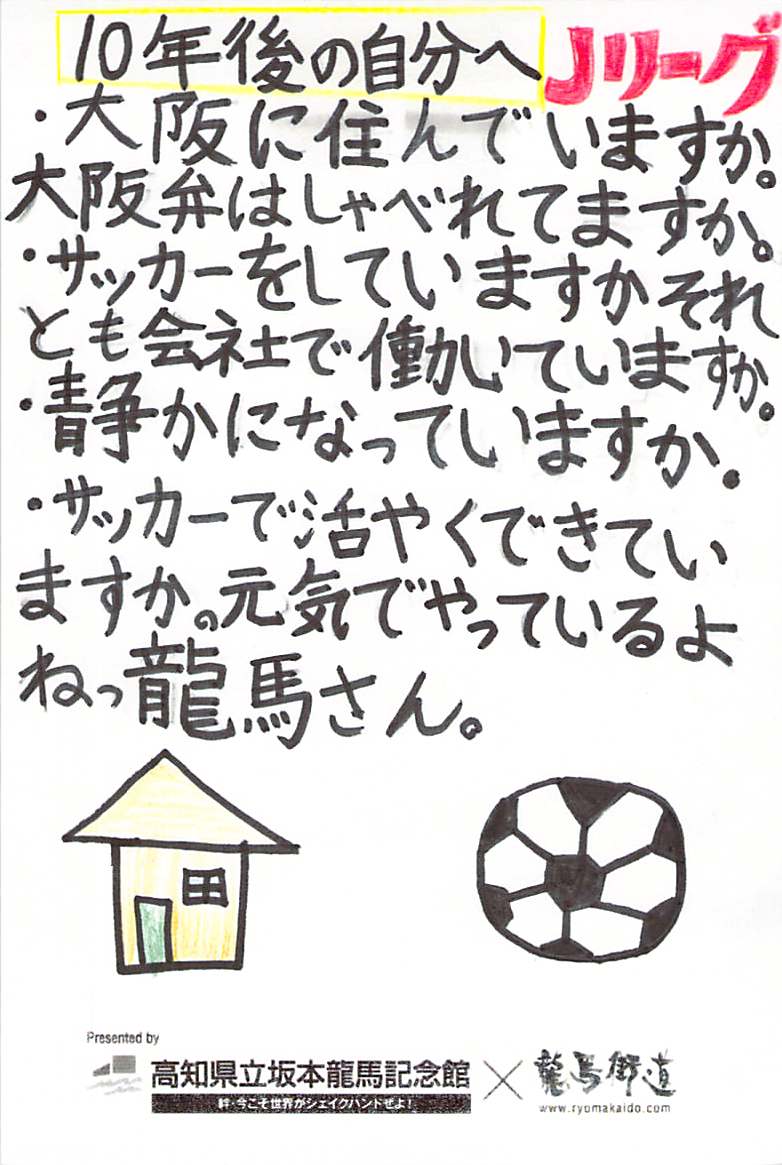 10年後の自分へ Jリーグ
・大阪に住んでいますか。
大阪弁はしゃべれてますか。
・サッカーをしていますかそれ
とも会社で働いていますか。
・静かになっていますか.
・サッカーで活やくできてい
ますか。元気でやっているよ
ねっ龍馬さん。
Presented by
高知県立坂本龍馬記念館×龍馬街道
絆・今こそ世界がシェイクハンドぜよ!
www.ryomakaido.com